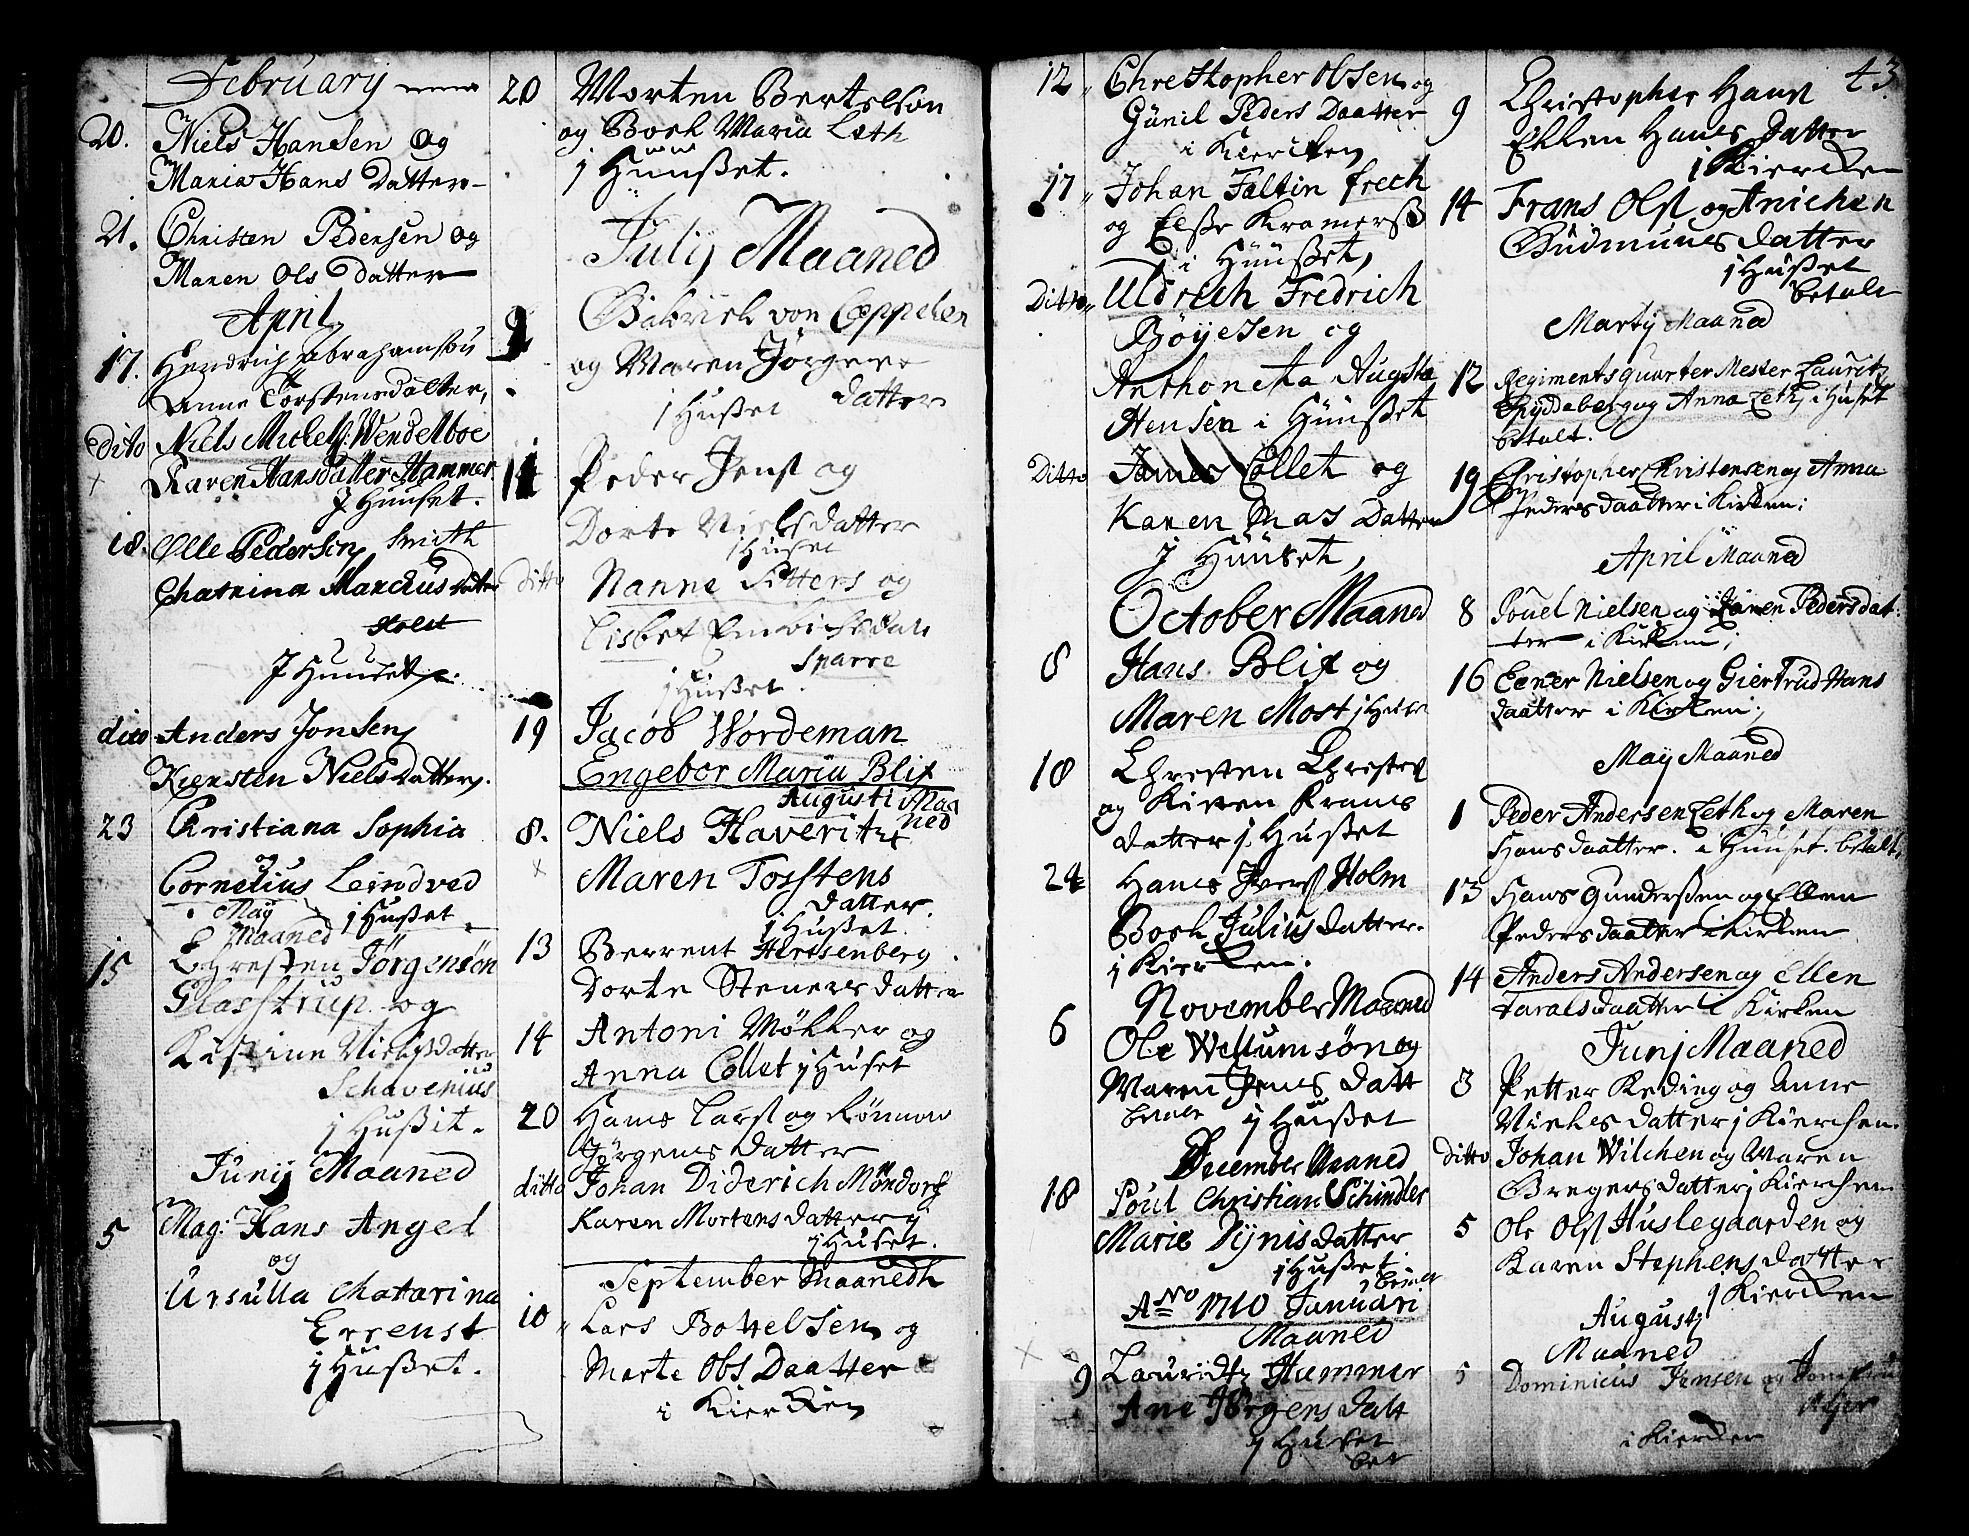 February
20. Niels Hansen og
Maria Hans Datter
21. Christen Pedersen og
Maren Ols Datter
April
17. Hendrich Abrahamsøn
Anne Torstensdatter,
dito Niels Michels: Wendelboe
Karen Hansdatter Hammer.
J Huuset.
18. Olle Pedersen Smith
Chatrina Marckus datter
J Huuset
dito Anders Jonsen
Kiersten Niels datter.
23 Christiana Sophia
og
Cornelius Leindved
j Hußet
May
Maaned
15 Chresten Jörgensön
Glasstrup og
Kistine Nielsdatter
Schavenius
j Hußit.
Junij Maaned
5 Mag: Hans Angel
og
Ursulla Chatarina
Erenst
j Hußet.
20 Morten Bertelson
og Boel Maria Leth
j Huußet.
Julij Maaned
9 Gabriel von Cappelen
og Maren Jörgens
datter
j Hußet
11 Peder Jens og
Dorte Niels datter
j Hußet
Ditto Nanne Sitters og
Lisbet datt
Sparre
j Hußet.
19 Jacob Wordeman
Engebor Maria Blix
Augusti Maa
ned
8. Niels Haveritz
Maren Tosstens
datter.
j Hußet.
13 Berrent Hertsenberg
Dorte Steners datter
14 Antoni Møller og
Anna Collet j Huset
20 Hans Lars og Rönnow
Jörgens datter
ditto Johan Diderich Möndorf
Karen Mortens datter
j Huset.
September Maanedh
10 Lars Bottelsen og
Marte Obs Daatter
i Kiercken
12 Chrestopher Olsen og
Gunil Peders Daatter
i Kiercken
17 Johan Faltin frech
og Elße Kramerß
i Huußet,
Ditto Uldrich Fredrich
Böyesen og
Anthoneta Augsta
Hensen i Huußet
Ditto James Collet og
Karen Mas Datter
J Huuset,
October Maaned
8 Hans Blix og
Maren Most j Hußet
18 Chresten Chrestens
og Kirren Frans
datter j Hußet
24 Hans Jvers Holm
Boel Julius datter.
j Kiercken.
November Maaned
6 Ole Wellumsön og
Maren Jens Datt
j Hußet
December Maaned
18 Poul Christian Schindler
Marie Dynis datter
j Hußet
Ano 1710 Januari
Maaned
9 Lauridtz Hammer
Ane Jörgens datt
j Huset
bet
43
9 Christopher Hans
Ellen Hans Datter
j Kiercken
14 Frans Ols og Anichen
Gudmuns datter
j Hußet
betalt
Martij Maaned
12 Regimentsquarter Mester Lauritz
Spydeberg og Anna Leth i Huset
betalt.
19 Christopher Christensen og Anna
Peders daatter i Kirken;
April Maaned
8 Pouel Nielsen og Karen Pedersdat
ter i Kirken;
16 Eener Nielsen og Giertrud Hans
daatter i Kirken;
May Maaned
1 Peder Andersen Leth og Maren
Hans daatter. i Huuset. betalt.
13 Hans Gunderßen og Ellen
Peders daatter i Kirken
14 Anders Andersen og Ellen
Tarals daatter i Kirken
Junj Maaned
3 Petter Keding og Anne
Niels datter j Kierchen.
Ditto Johan Wilchen og Maren
Gregers datter j Kierchen
5 Ole Ols Huslegaarden og
Karen Stephens datter
j Kiercken
Augustj
Maaned
5 Dominicus Jensen og
i Kiercken